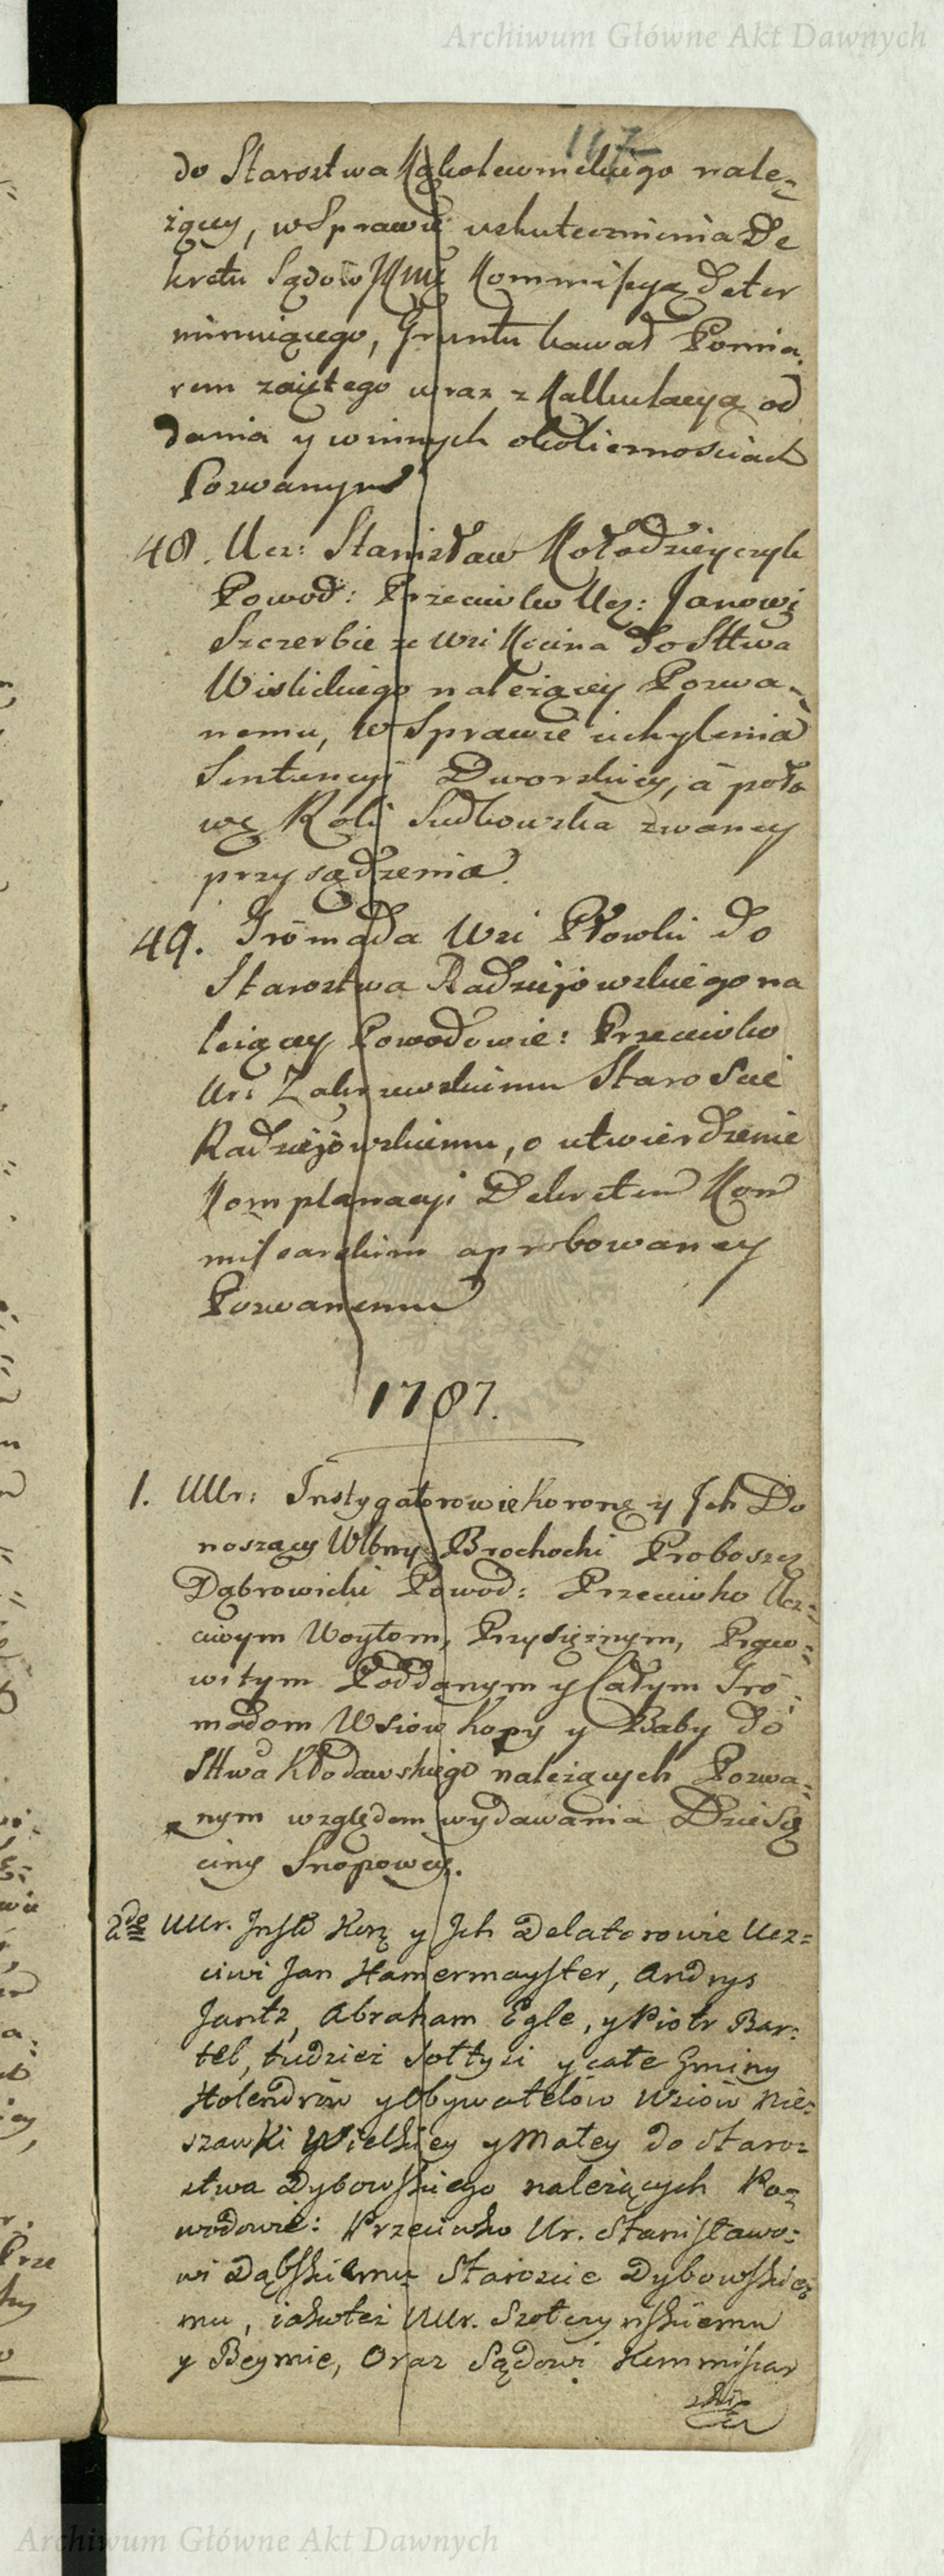 Archiwum Główne Akt Dawnych
117
do Starostwa Kąkolewnickiego nale-
żącey, w Sprawie uskutecznienia De
kretu Sądów JKMć Kommissyą deter
minuiącego, Gruntu kawał Pomia
rem zaiętego wraz z Kalkulacyą od
dania y w innych okolicznościach
Pozwanym
48. Ucz: Stanisław Kołodzieyczyk
Powod: Przeciwko Ucz: Janowi
Szczerbie ze Wsi Kcina do Sttwa
Wislickiego należącey Pozwa-
nemu, w Sprawie uchylenia
Sentencyi Dworskiey, á poło
wę Roli Sudkowska zwaney
przysądzenia.
49. Gromada Wsi Płowki do
Starostwa Radziejowskiego na
leżącey Powodowie: Przeciwko
Ur: Zakrzewskiemu Staroście
Radziejowskiemu, o utwierdzenie
Komplanacyi Dekretem Kom
missarskim aprobowaney
Pozwanemu
1787.
1. UUr: Instygatorowie Koronę y Ich Do
noszący Wlbny Brochocki Proboszcz
Dąbrowicki Powod: Przeciwko Ucz-
ciwym Woytom, Przysiężnym, Prawo-
witym Poddanym y Całym Gro-
madom Wsiow Kopy y Baby do
Sttwa Kłodawskiego należących Pozwa-
nym względem wydawania Dziesię
ciny Snopowey.
2de UUr. Insto Korę y Ich Delatorowie Ucz=
ciwi Jan Hamermayster, Andrys
Jantz, Abraham Egle, y Piotr Bar-
tel, tudzież Sołtysi y całe Gminy
Holendrów y Obywatelów Wsiów Nie-
szawki Wielkiey y Małey do Staro-
stwa Dybowskiego należących Po-
wodowie: Przeciwko Ur. Stanisławo-
wi Dąbskiemu Staroście Dybowskie
mu, iakoteż UUr. Szołczynskiemu
y Beymie, Oraz Sądowi Kommissar
ski
Archiwum Główne Akt Dawnych